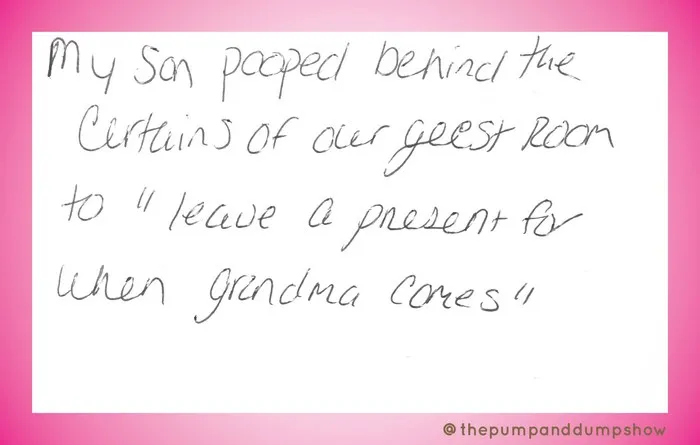 My son pooped behind the
Curtains of our guest Room
to "leave a present for
when grandma comes"
@thepumpanddumpshow